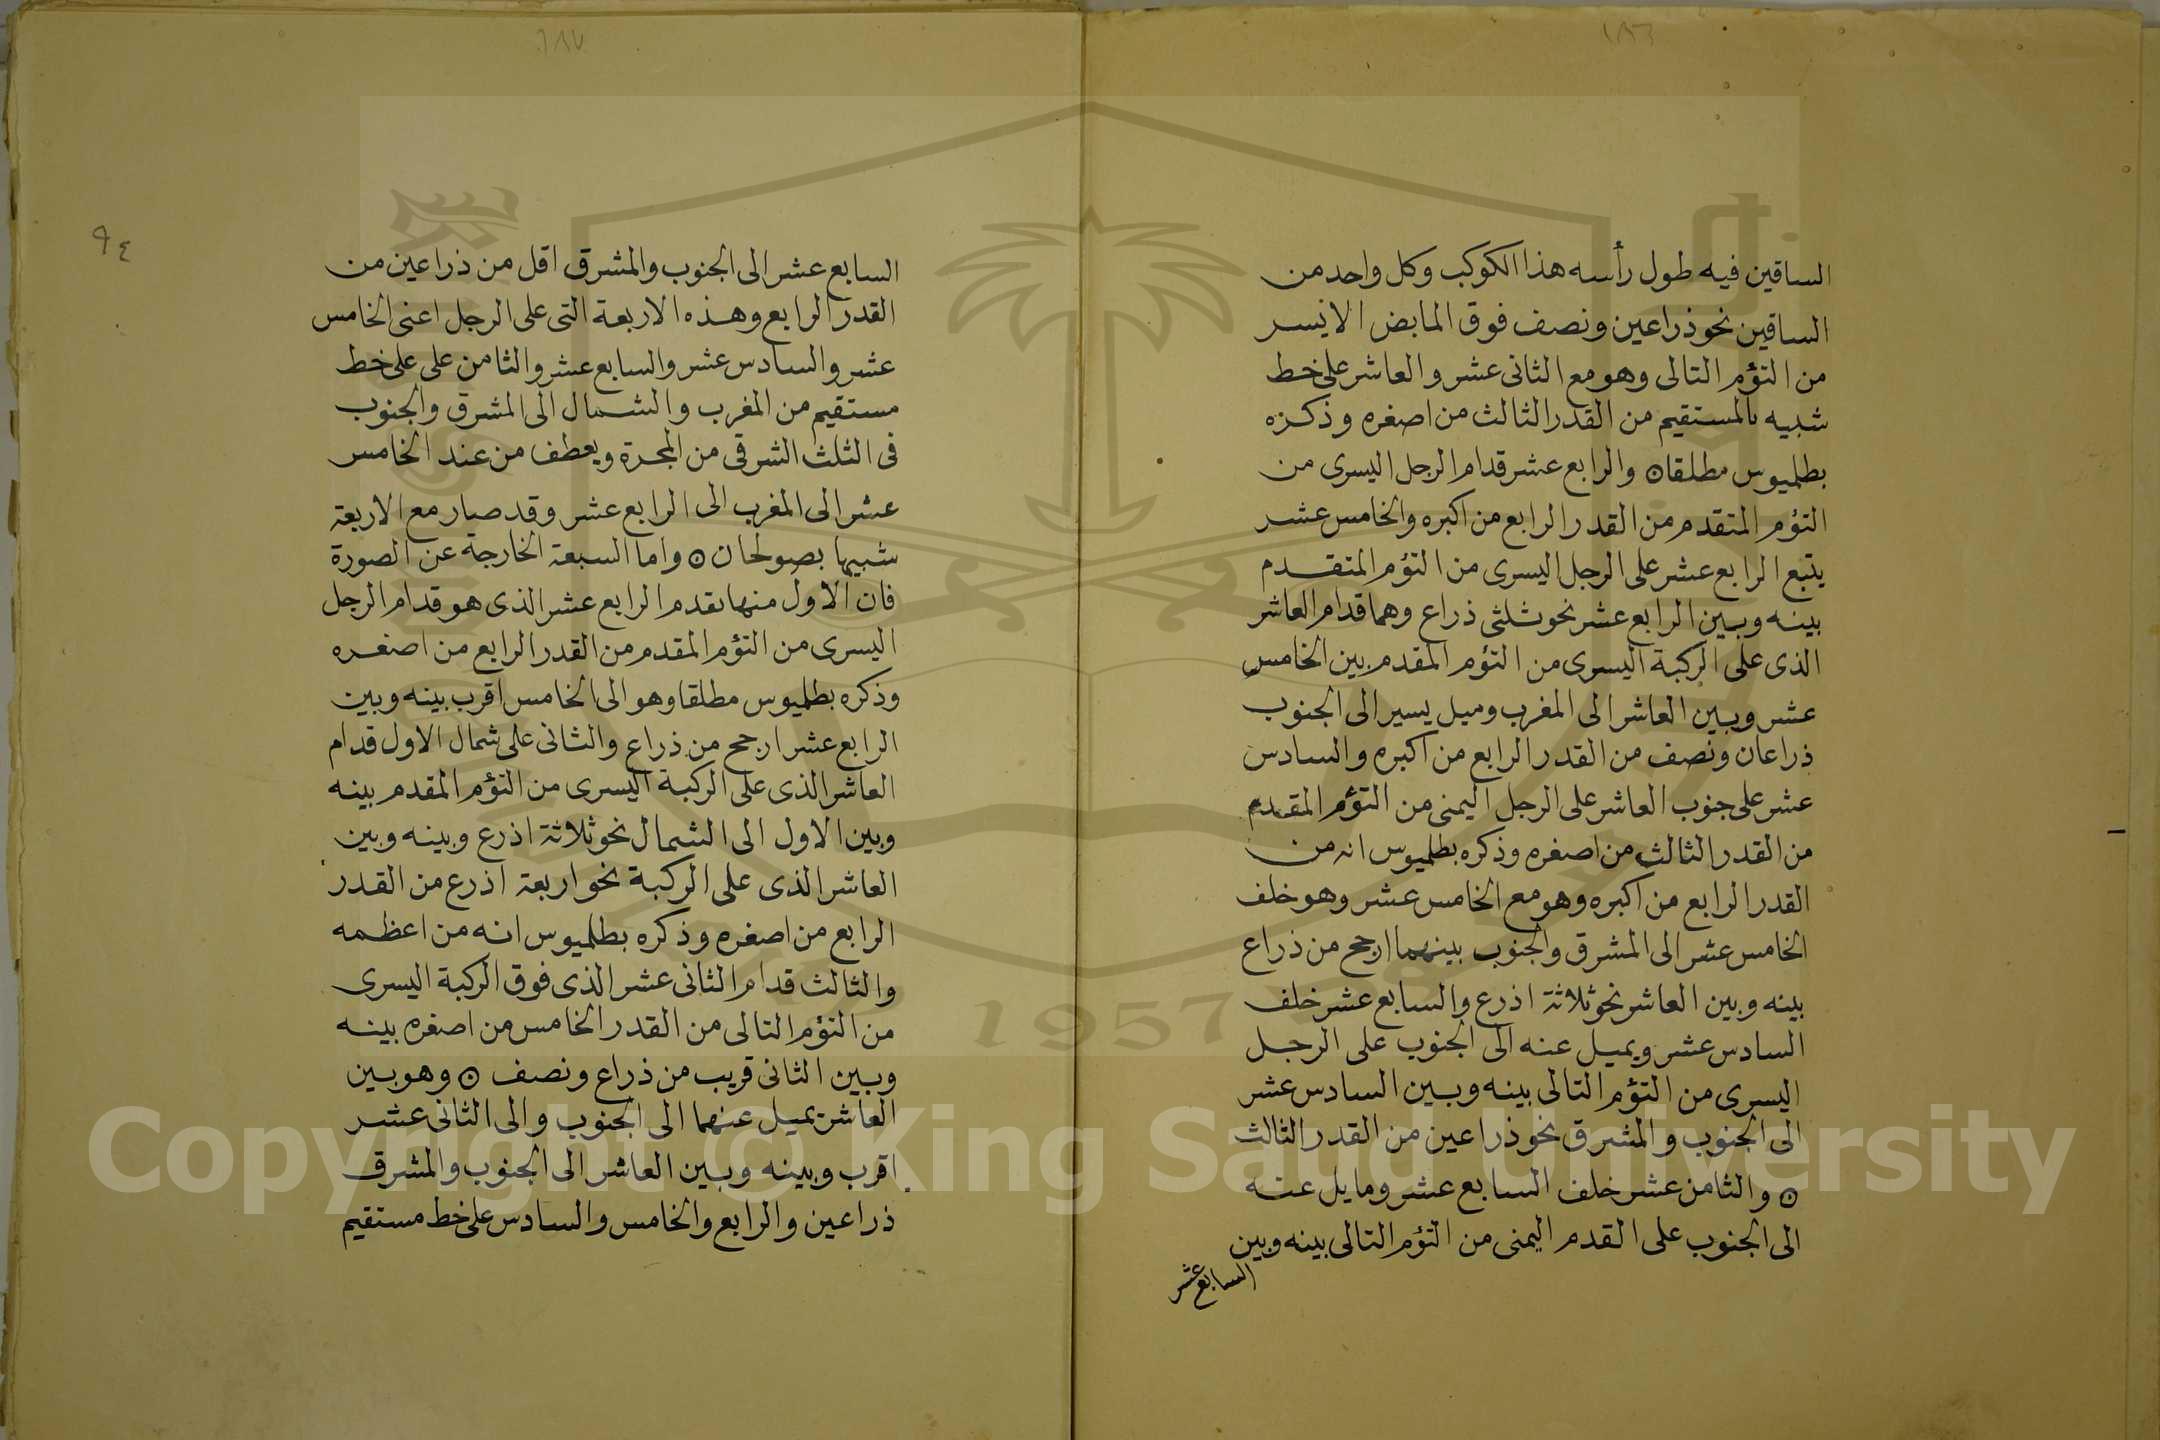 ١٨٦
الساقين فيه طول رأسه هذا الكوكب وكل واحد من
الساقين نحو ذراعين ونصف فوق المابض الايسر
من التؤم التالى وهو مع الثانى عشر والعاشر على خط
شبيه بالمستقيم من القدر الثالث من اصغره وذكره
بطلميوس مطلقا ۞ والرابع عشر قدام الرجل اليسرى من
التؤم المتقدم من القدر الرابع من اكبره والخامس عشر
يتبع الرابع عشر على الرجل اليسرى من التؤم المتقدم
بينه وبين الرابع عشر نحو ثلثى ذراع وهما قدام العاشر
الذى على الركبة اليسرى من التؤم المقدم بين الخامس
عشر وبين العاشر الى المغرب وميل يسير الى الجنوب
ذراعان ونصف من القدر الرابع من اكبره والسادس
عشر على جنوب العاشر على الرجل اليمنى من التؤم المقدم
من القدر الثالث من اصغره وذكره بطلميوس انه من
القدر الرابع من اكبره وهو مع الخامس عشر وهو خلف
الخامس عشر الى المشرق والجنوب بينهما ارجح من ذراع
بينه وبين العاشر نحو ثلاثة اذرع والسابع عشر خلف
السادس عشر ويميل عنه الى الجنوب على الرجل
اليسرى من التؤم التالى بينه وبين السادس عشر
الى الجنوب والمشرق نحو ذراعين من القدر الثالث
۞ والثامن عشر خلف السابع عشر ومايل عنه
الى الجنوب على القدم اليمنى من التؤم التالى بينه وبين
السابع عشر
١٨٧
٩٤
السابع عشر الى الجنوب والمشرق اقل من ذراعين من
القدر الرابع وهذه الاربعة التى على الرجل اعنى الخامس
عشر والسادس عشر والسابع عشر والثامن على على خط
مستقيم من المغرب والشمال الى المشرق والجنوب
فى الثلث الشرقى من المجرة ويعطف من عند الخامس
عشر الى المغرب الى الرابع عشر وقد صار مع الاربعة
شبيها بصولحان ۞ واما السبعة الخارجة عن الصورة
فان الاول منها تقدم الرابع عشر الذى هو قدام الرجل
اليسرى من التؤم المقدم من القدر الرابع من اصغره
وذكره بطلميوس مطلقا وهو الى الخامس اقرب بينه وبين
الرابع عشر ارجح من ذراع والثانى على شمال الاول قدام
العاشر الذى على الركبة اليسرى من التؤم المقدم بينه
وبين الاول الى الشمال نحو ثلاثة اذرع وبينه وبين
العاشر الذى على الركبة نحو اربعة اذرع من القدر
الرابع من اصغره وذكره بطلميوس انه من اعظمه
والثالث قدام الثانى عشر الذى فوق الركبة اليسرى
من التؤم التالى من القدر الخامس من اصغره بينه
وبين الثانى قريب من ذراع ونصف ۞ وهو بين
العاشر يميل عنهما الى الجنوب والى الثانى عشر
اقرب وبينه وبين العاشر الى الجنوب والمشرق
ذراعين والرابع والخامس والسادس على خط مستقيم
1957
Copyright © King Saud University